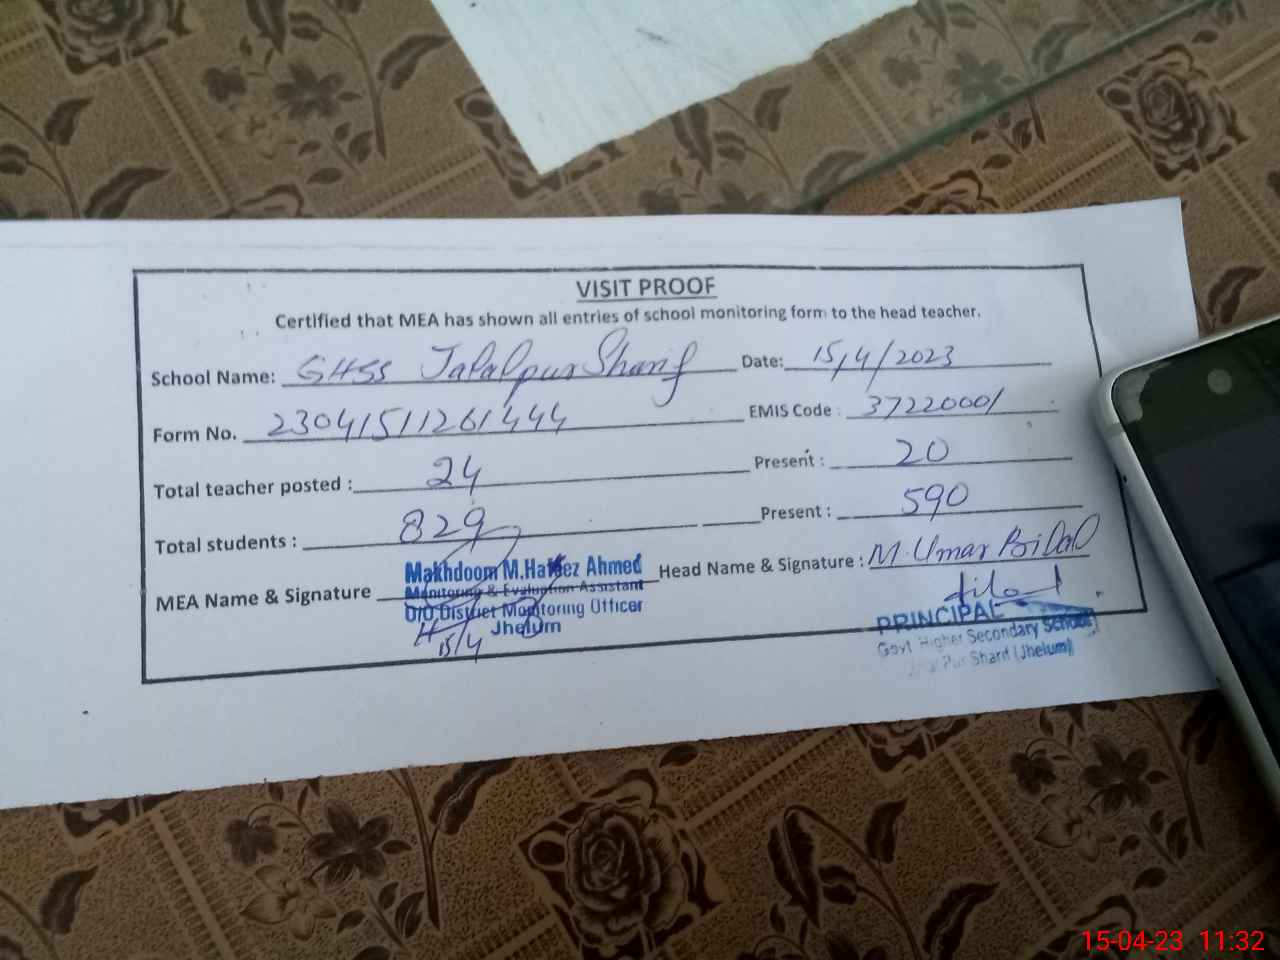 VISIT PROOF
Certified that MEA has shown all entries of school monitoring form to the head teacher.
School Name: GHSS Jalalpur Sharif Date: 15/4/2023
Form No. 23041511261444 EMIS Code : 37220001
Total teacher posted : 24 Present : 20
Total students : 829 Present : 590
MEA Name & Signature Makhdoom M.Hafeez Ahmed Head Name & Signature : M. Umar Bilal
Monitoring & Evaluation Assistant
O/O District Monitoring Officer
Jhelum
15/4
PRINCIPAL
Govt Higher Secondary School
Pur Sharif (Jhelum)
15-04-23 11:32